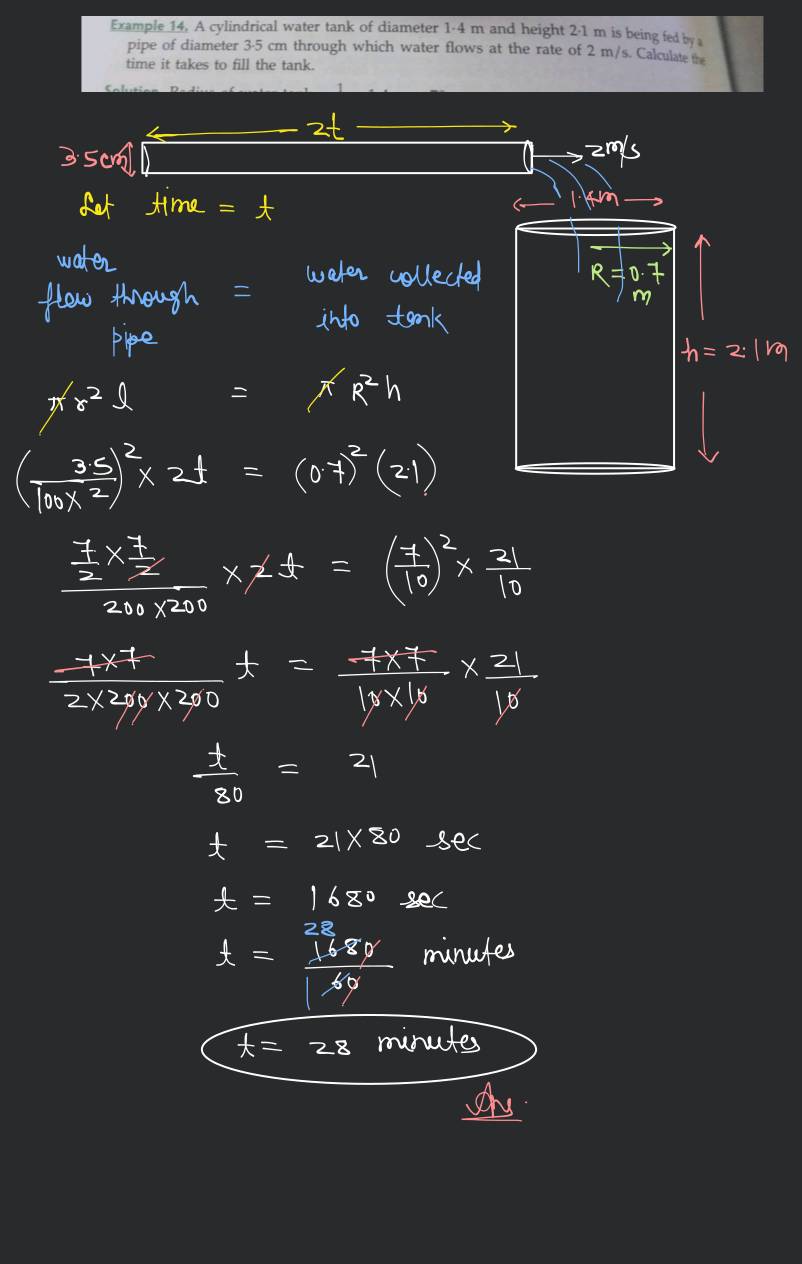 Example 14. A cylindrical water tank of diameter 1·4 m and height 2·1 m is being fed by a
pipe of diameter 3·5 cm through which water flows at the rate of 2 m/s. Calculate the
time it takes to fill the tank.
Solution. Radius of water tank
2t
3.5cm
2m/s
1.4m
Let time = t
R = 0.7
m
h = 2.1m
water
flow through
pipe
=
water collected
into tank
πr² l = πR²h
(3.5/(100×2))² × 2t = (0.7)² (2.1)
(7/2 × 7/2)/(200×200) × 2t = (7/10)² × 21/10
(7×7)/(2×200×200) t = (7×7)/(10×10) × 21/10
t/80 = 21
t = 21×80 sec
t = 1680 sec
28
t = 1680/60 minutes
1
t = 28 minutes
Ans.